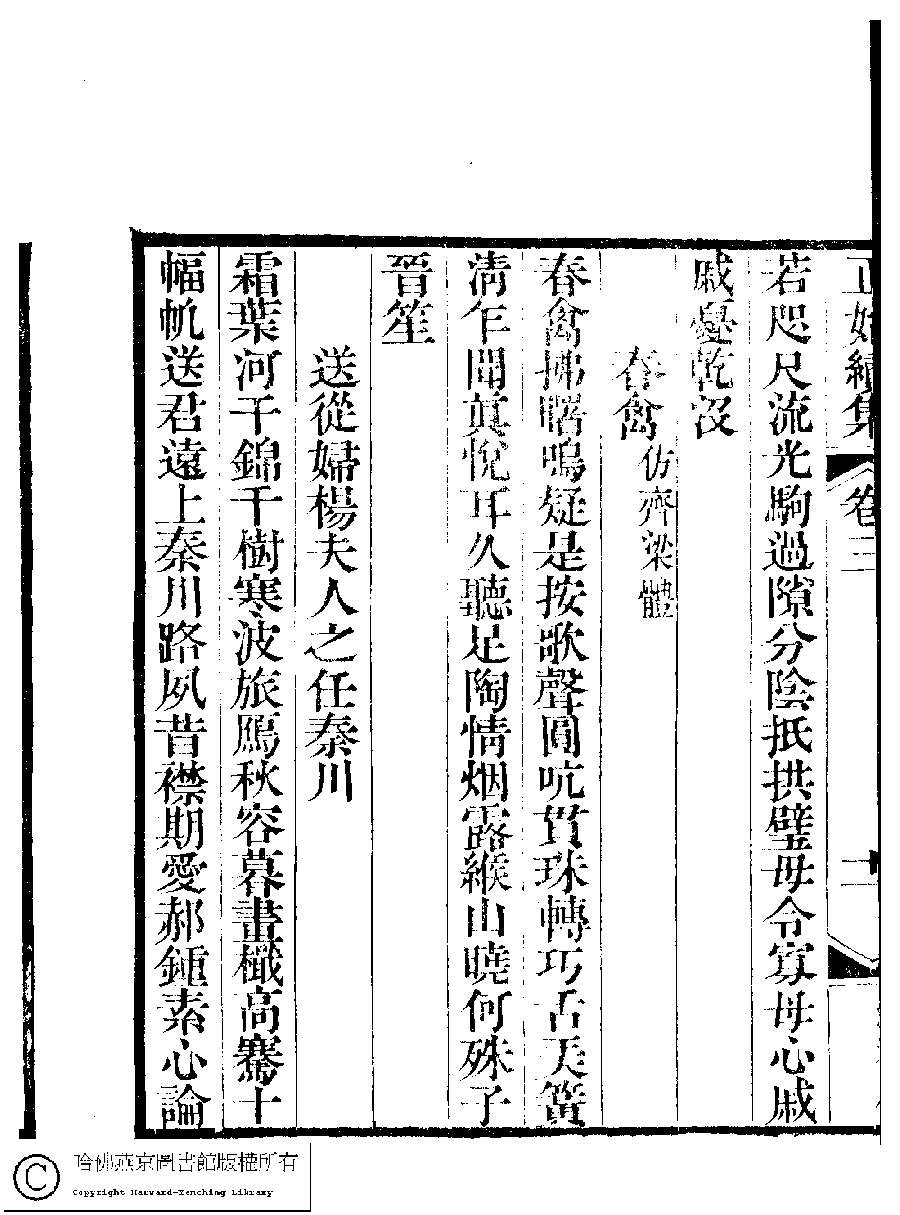 正始續集 卷三 十
若咫尺流光駒過隙分陰抵拱璧毋令寡母心戚
戚憂乾沒
春禽仿齊梁體
春禽拂曙鳴疑是按歌聲圓吭貫珠轉巧舌天簧
清乍聞眞悅耳久聽足陶情烟露緱山曉何殊子
晉笙
送從婦楊夫人之任秦川
霜葉河干錦千樹寒波旅鴈秋容暮畫檥高騫十
幅帆送君遠上秦川路夙昔襟期愛郝鍾素心論
哈佛燕京圖書館版權所有
Copyright Harvard-Yenching Library